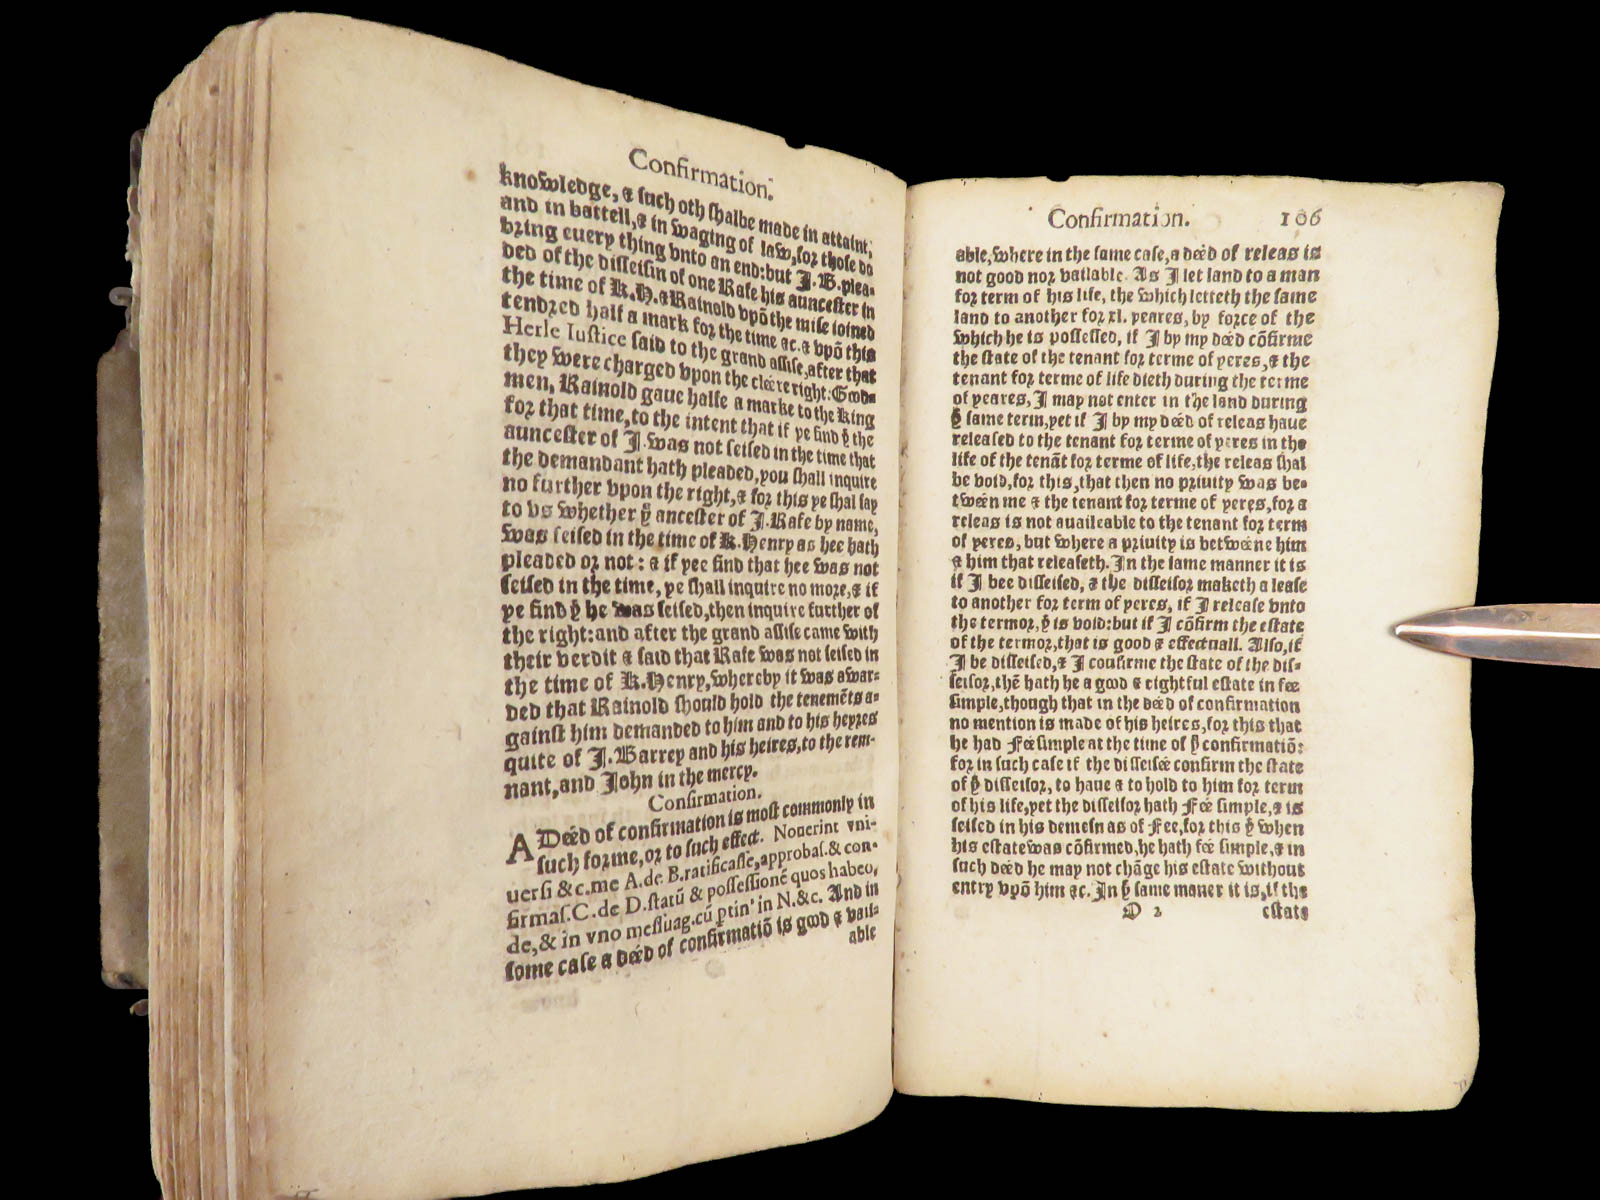 Confirmation.
knowledge, & such oth shalbe made in attaint,
and in battell, & in waging of law, for those do
bring euery thing vnto an end: but J. B. plea-
ded of the disseisin of one Rafe his auncester in
the time of K. H. & Rainold vpō the mise ioined
tendred half a mark for the time &c. & vpō this
Herle Iustice said to the grand assise, after that
they were charged vpon the cleere right: Good
men, Rainold gaue halfe a marke to the King
for that time, to the intent that if ye find ẏ the
auncester of J. was not seised in the time that
the demandant hath pleaded, you shall inquire
no further vpon the right, & for this ye shal say
to vs whether ẏ ancester of J. Rafe by name,
was seised in the time of K. Henry as hee hath
pleaded or not: & if yee find that hee was not
seised in the time, ye shall inquire no more, & if
ye find ẏ he was seised, then inquire further of
the right: and after the grand assise came with
their verdit & said that Rafe was not seised in
the time of K. Henry, whereby it was awar-
ded that Rainold should hold the tenemēts a-
gainst him demanded to him and to his heyres
quite of J. Barrey and his heires, to the rem-
nant, and John in the mercy.
Confirmation.
A Deéd of confirmation is most commonly in
such forme, or to such effect. Nouerint vni-
uersi &c. me A. de B. ratificasse, approbas. & con-
firmas. C. de D. statū & possessionē quos habeo,
de, & in vno mesuag. cū ptin' in N. &c. And in
some case a deéd of confirmatiō is good & vail-
able
Confirmation. 106
able, where in the same case, a deéd of releas is
not good nor vailable. As J let land to a man
for term of his life, the which letteth the same
land to another for xl. yeares, by force of the
which he is possessed, if J by my deéd cōfirme
the state of the tenant for terme of yeres, & the
tenant for terme of life dieth during the terme
of yeares, J may not enter in the land during
ẏ same term, yet if J by my deéd of releas haue
released to the tenant for terme of yeres in the
life of the tenāt for terme of life, the releas shal
be void, for this, that then no priuity was be-
tweén me & the tenant for terme of yeres, for a
releas is not auaileable to the tenant for term
of yeres, but where a priuity is betweéne him
& him that releaseth. In the same manner it is
if J bee disseised, & the disseisor maketh a lease
to another for term of yeres, if J release vnto
the termor, ẏ is void: but if J cōfirm the estate
of the termor, that is good & effectuall. Also, if
J be disseised, & J confirme the state of the dis-
seisor, thē hath he a good & rightful estate in feé
simple, though that in the deéd of confirmation
no mention is made of his heires, for this that
he had Feé simple at the time of ẏ confirmatiō:
for in such case if the disseiseé confirm the state
of ẏ disseisor, to haue & to hold to him for term
of his life, yet the disseisor hath Feé simple, & is
seised in his demesn as of Fee, for this ẏ when
his estate was cōfirmed, he hath feé simple, & in
such deéd he may not chāge his estate without
entry vpō him &c. In ẏ same maner it is, if the
D 2 estate